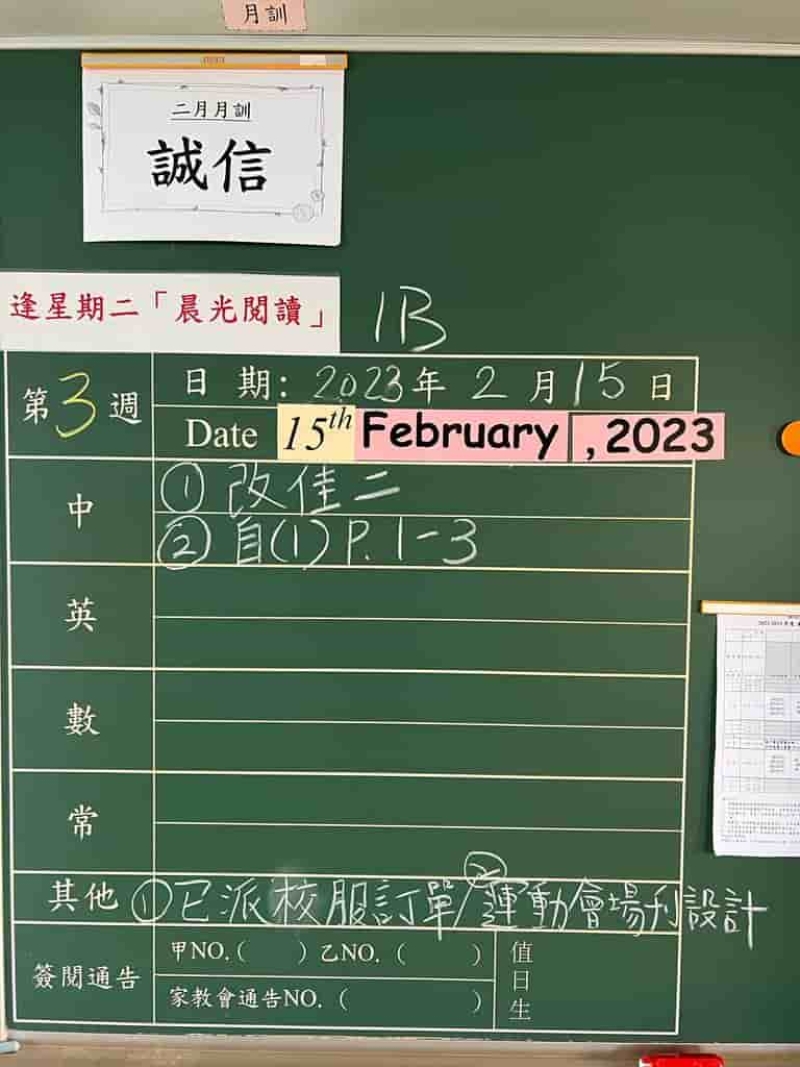 月訓
二月月訓
誠信
逢星期二「晨光閱讀」
1B
第3週
日 期：2023年 2 月15 日
Date 15th February , 2023
中
① 改佳二
② 自(1) P. 1-3
英
數
常
其他 ①已派校服訂單/②運動會場刋設計
簽閱通告
甲NO.( ) 乙NO. ( )
家教會通告NO. ( )
值日生